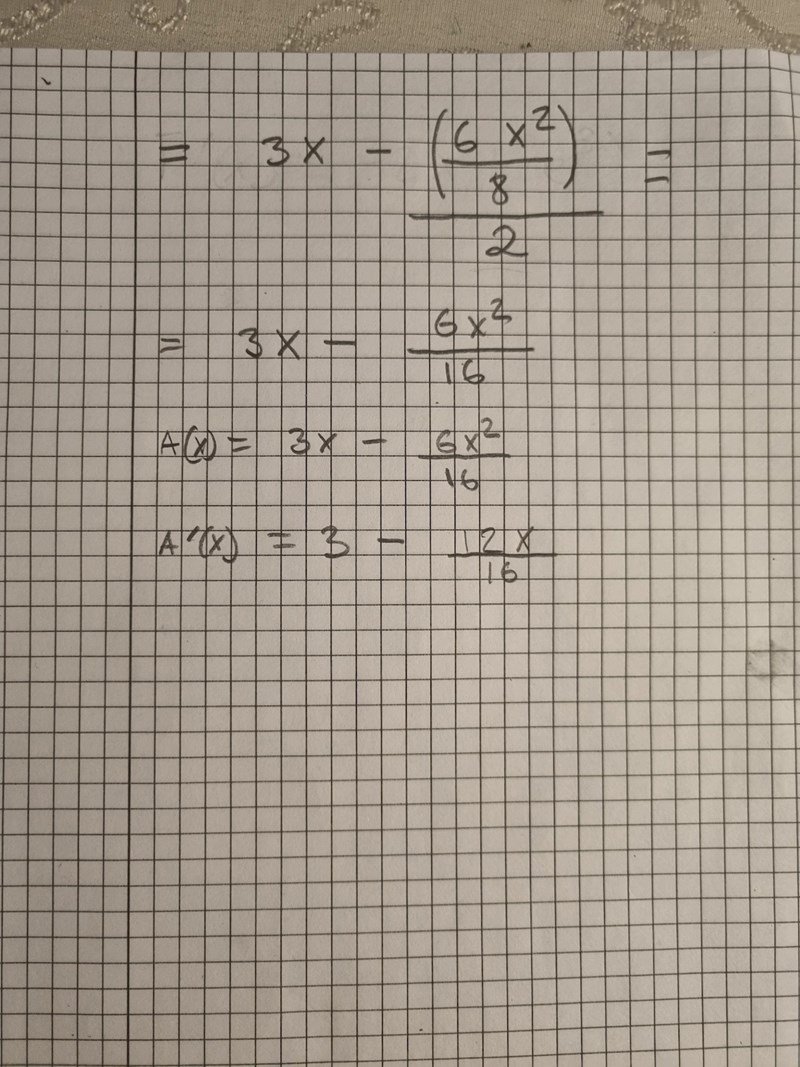 = 3x - ((6 x²)/8)/2 =
= 3x - 6x²/16
A(x) = 3x - 6x²/16
A'(x) = 3 - 12x/16